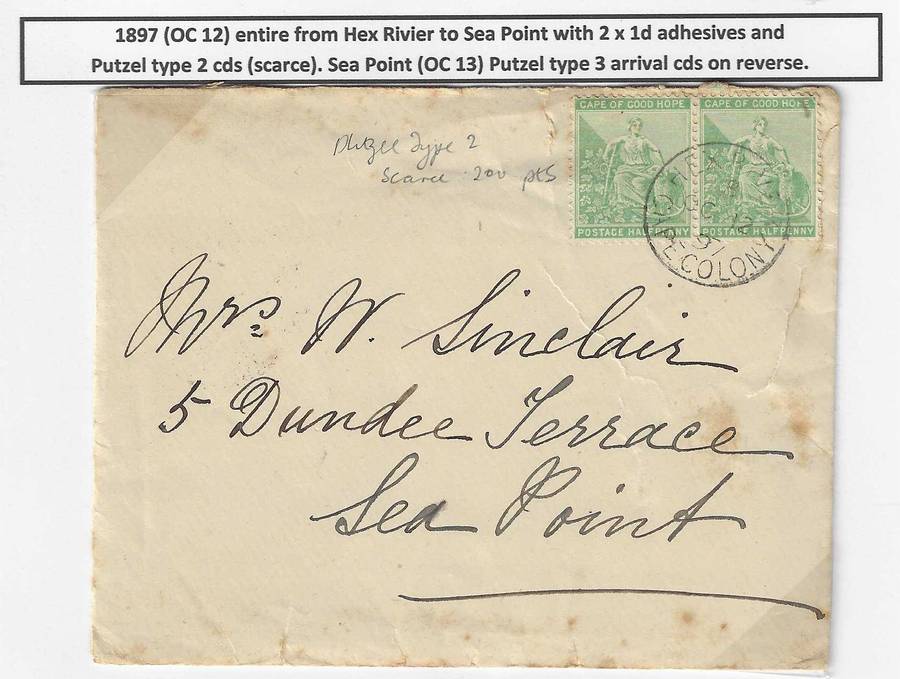 1897 (OC 12) entire from Hex Rivier to Sea Point with 2 x 1d adhesives and
Putzel type 2 cds (scarce). Sea Point (OC 13) Putzel type 3 arrival cds on reverse.
CAPE OF GOOD HOPE CAPE OF GOOD HOPE
Putzel Type 2
Scarce 200 pts
HEX RIV
OC 12
97
CAPE COLONY
POSTAGE HALFPENNY POSTAGE HALFPENNY
Mrs W. Sinclair
5 Dundee Terrace
Sea Point